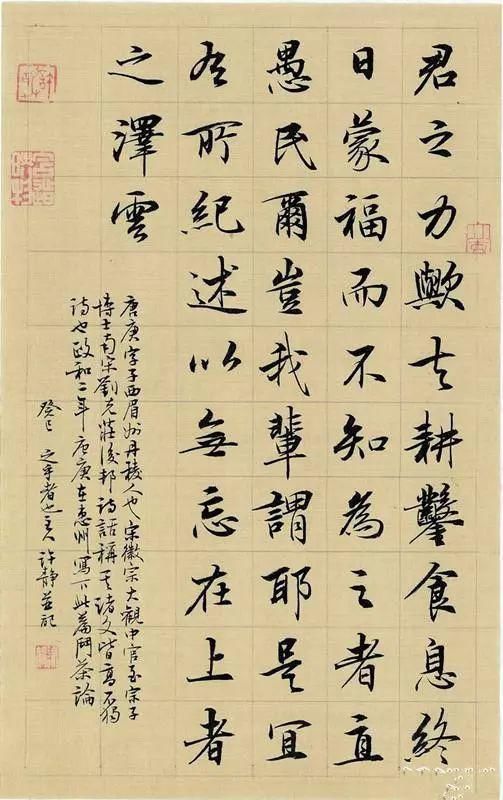 君之力歟夫耕鑿食息終
日蒙福而不知為之者直
愚民爾豈我輩謂耶是宜
有所紀述以無忘在上者
之澤雲
唐庚字子西眉州丹稜人也宋徽宗大觀中官至宗子
博士南宋劉克莊後邨詩話稱其諸文皆高不獨
詩也政和二年唐庚在惠州寫下此篇鬥茶論
癸巳 之乎者也主人 許静並記